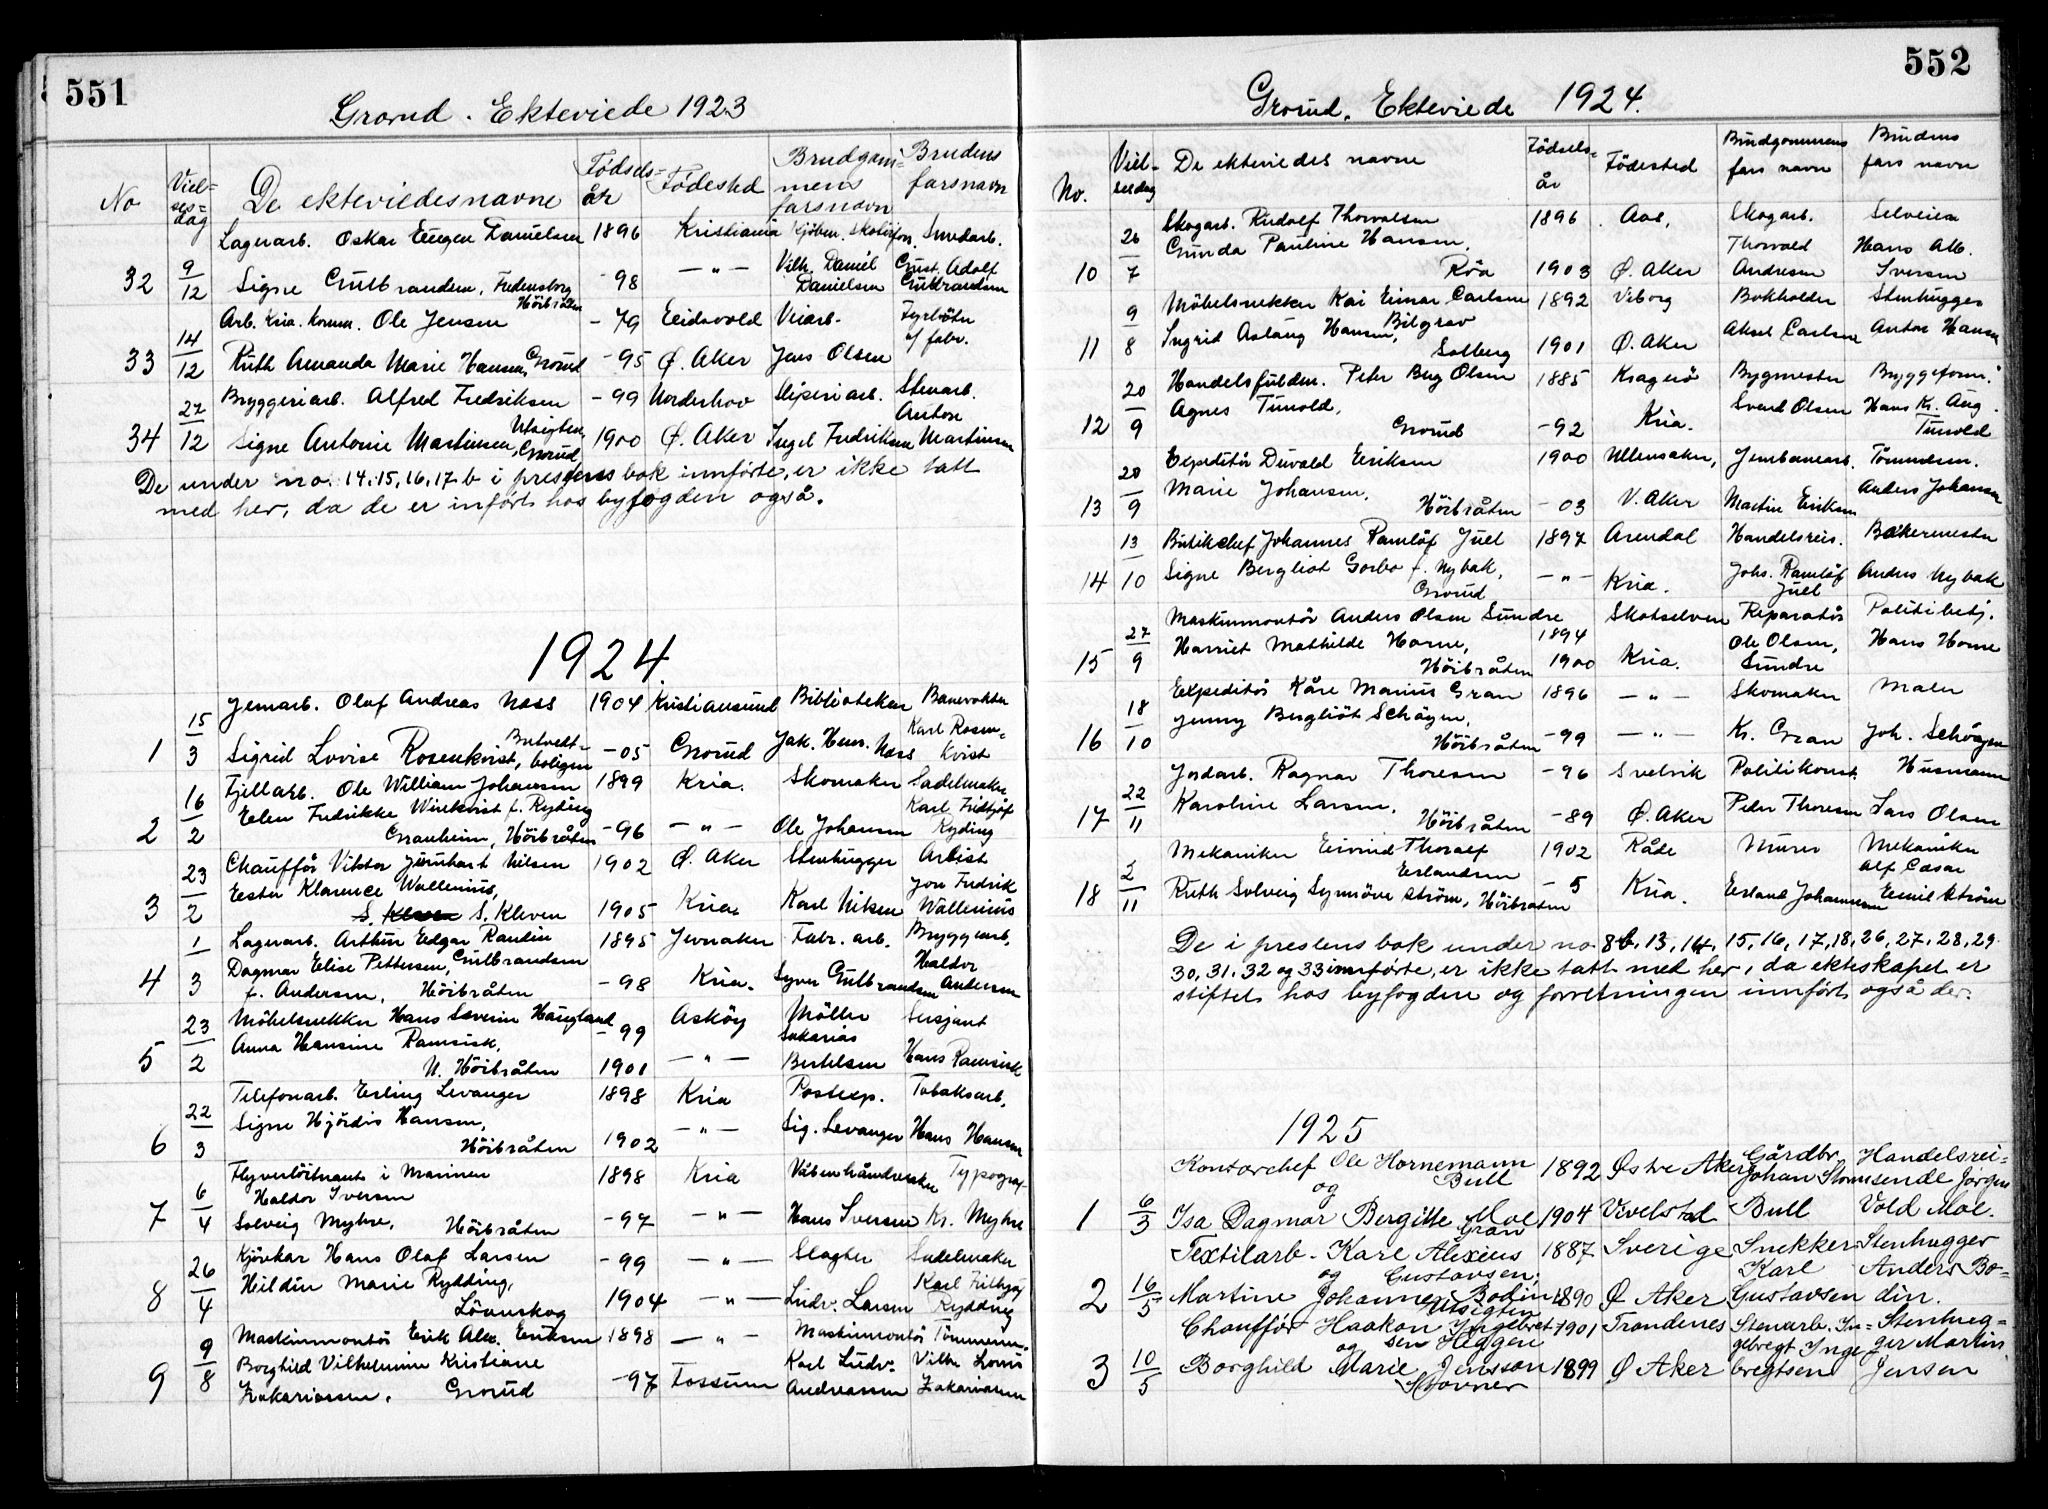 551
Grorud. Ekteviede 1923
No
Viel-
ses-
dag
De ekteviedes navne
Fødsels-
år
Fødested
Brudgom-
mens
farsnavn
Brudens
farsnavn
Lagerarb. Oskar Eugen Danielsen 1896 Kristiania Smedarb.
32 9/12 Signe Gulbrandsen, Fredensborg -98 -"- Vilh. Daniel Gust. Adolf
Høibråten Danielsen Gulbrandsen
Arb. Kria. komm. Ole Jensen -79 Eidsvold Veiarb. Fyrbøter
33 14/12 Ruth Amanda Marie Hansen, Grorud -95 Ø. Aker Jens Olsen v/ fabr.
Bryggeriarb. Alfred Fredriksen -99 Norderhov Sliperiarb. Stenarb.
34 27/12 Signe Antonie Martinsen, Utsigten, Grorud 1900 Ø. Aker Fredriksen Anton Martinsen
De under no. 14, 15, 16, 17 b i prestens bok innførte, er ikke tatt
med her, da de er inført hos byfogden også.
1924.
Jernarb. Olaf Andreas Næss 1904 Kristiansund Bibliotekar Banevokter
1 15/3 Sigrid Lovise Rosenkvist, Butvedt-boligen -05 Grorud Jak. Henr. Næss Karl Rosenkvist
Fjellarb. Ole William Johansen 1899 Kria. Skomaker Sadelmaker
2 16/2 Elen Fredrikke Winkvist f. Ryding
Granheim, Høibråten -96 -"- Ole Johansen Karl Fridtjof Ryding
Chauffør Viktor Nilsen 1902 Ø. Aker Stenhugger Artist
3 23/2 Ester Klarence Wallenius,
S. Kleven 1905 Kria. Karl Nilsen Jon Fredrik Wallenius
Lagerarb. Arthur Edgar Randin Gulbrandsen 1895 Jevnaker Fabr. arb. Bryggearb.
4 1/3 Dagmar Elise Pettersen,
f. Andersen, Høibråten -98 Kria. Syver Gulbrandsen Haldor Andersen
Møbelsnekker Hans Severin Haugland -99 Askøy Møller Sersjant
5 23/2 Anna Hansine Ramsisk,
N. Høibråten 1901 -"- Sakarias Bertelsen Hans Ramsisk
Telefonarb. Erling Levanger 1898 Kria Postexp. Tobaksarb.
6 22/3 Signe Hjördis Hansen,
Høibråten 1902 -"- Sig. Levanger Hans Hansen
Flyverløitnant i Marinen 1898 Kria Våbenhåndverker Typograf
Haldor Iversen
7 6/4 Solveig Myhre, Høibråten -97 -"- Hans Iversen Kr. Myhre
Kjørekar Hans Olaf Larsen -99 -"- Slagter Sadelmaker
8 26/4 Hildur Marie Rydding,
Lørenskog 1904 -"- Ludv. Larsen Karl Rydding
Maskinmontør Erik Alex. Eriksen 1898 -"- Maskinmontør Tømmerm.
9 9/8 Borghild Vilhelmine Kristiane
Zakariassen, Grorud -97 Fossum Karl Ludv. Andreassen Vilh. Louis Zakariassen
552
Grorud. Ekteviede 1924.
No.
Viel-
sesdag
De ekteviedes navne
Fødsels-
år
Fødested
Brudgommens
fars navn
Brudens
fars navn
Skogarb. Rudolf Thorvalsen 1896 Aas, Skogarb. Selveier
10 26/7 Gunda Pauline Hansen,
Røa 1903 Ø. Aker Thorvald Andresen Hans Alb. Iversen
Møbelsnekker Kai Einar Carlsen 1892 Viborg Bokholder Stenhugger
11 9/8 Ingrid Aslaug Hansen, Bilgrav
Solberg 1901 Ø. Aker Aksel Carlsen Anton Hansen
Handelsfuldm. Peter Berg Olsen 1885 Kragerø Bygmester Bryggeform.
12 20/9 Agnes Tunold,
Grorud -92 Kria. Svend Olsen Hans Kr. Aug. Tunold
Expeditør Duvald Eriksen 1900 Ullensaker, Jernbanearb. Tømmerm.
13 20/9 Marie Johansen,
Høibråten -03 V. Aker Martin Eriksen Anders Johansen
Butikchef Johannes Ramløf Juel 1897 Arendal Handelsreis. Bakermester
14 13/10 Signe Bergliot Gorbo f. Nybak,
Grorud -"- Kria. Johs. Ramløf Juel Anders Nybak
Maskinmontør Anders Olsen Sundre 1894 Skotselven Reparatør Politibetj.
15 27/9 Harriet Mathilde Horne,
Høibråten 1900 Kria. Ole Olsen, Sundre Hans Horne
Expeditør Kåre Marius Gran 1896 -"- Skomaker Maler
16 18/10 Jenny Bergliöt Schøyen,
Høibråten -99 -"- Kr. Gran Joh. Schøyen
Jordarb. Ragnar Thoresen -96 Svelvik Politikonst. Husmann
17 22/11 Karoline Larsen,
Høibråten -89 Ø. Aker Peder Thoresen Lars Olsen
Mekaniker Eivind Thoralf
Erlandsen 1902 Råde Murer Mekaniker
18 2/11 Ruth Solveig Synnøve Strøm, Høibråten -5 Kria. Erland Johannesen Alf Cæsar Emil Strøm
De i prestens bok under no 8b, 13, 14, 15, 16, 17, 18, 26, 27, 28, 29
30, 31, 32 og 33 innførte, er ikke tatt med her, da ekteskapet er
stiftet hos byfogden og forretningen innført også der.
1925
Kontorchef Ole Hornemann Bull 1892 Østre Aker Gårdbr. Johan Storm Bull Handelsrei-
og
1 6/3 Isa Dagmar Bergitte Moe 1904 Vivelstad sende Jørgen Vold Moe.
Gran
Textilarb. Karl Alexius Gustavsen, 1887 Sverige Snekker Karl Gustavsen Stenhugger
og
2 16/5 Martine Johanne Bodin 1890 Ø Aker Anders Bodin.
Utsigten
Chauffør Haakon Ingebret- 1901 Trondenes Stenarb. In- Stenhug-
og sen Heggen gebregt Inge ger Martin
3 10/5 Borghild Marie Jensson 1899 Ø Aker bregtsen Jensen
Stovner